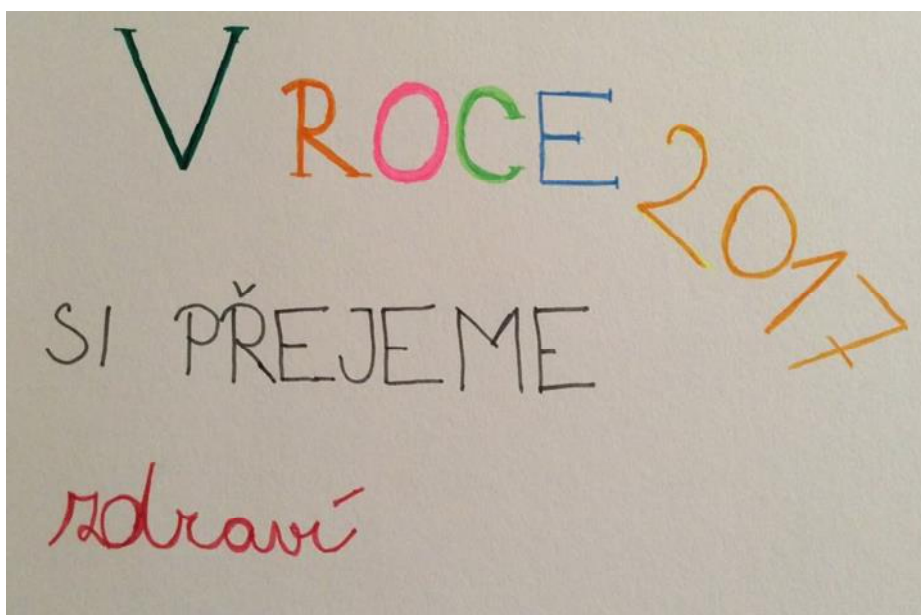 V ROCE 2017
SI PŘEJEME
zdraví